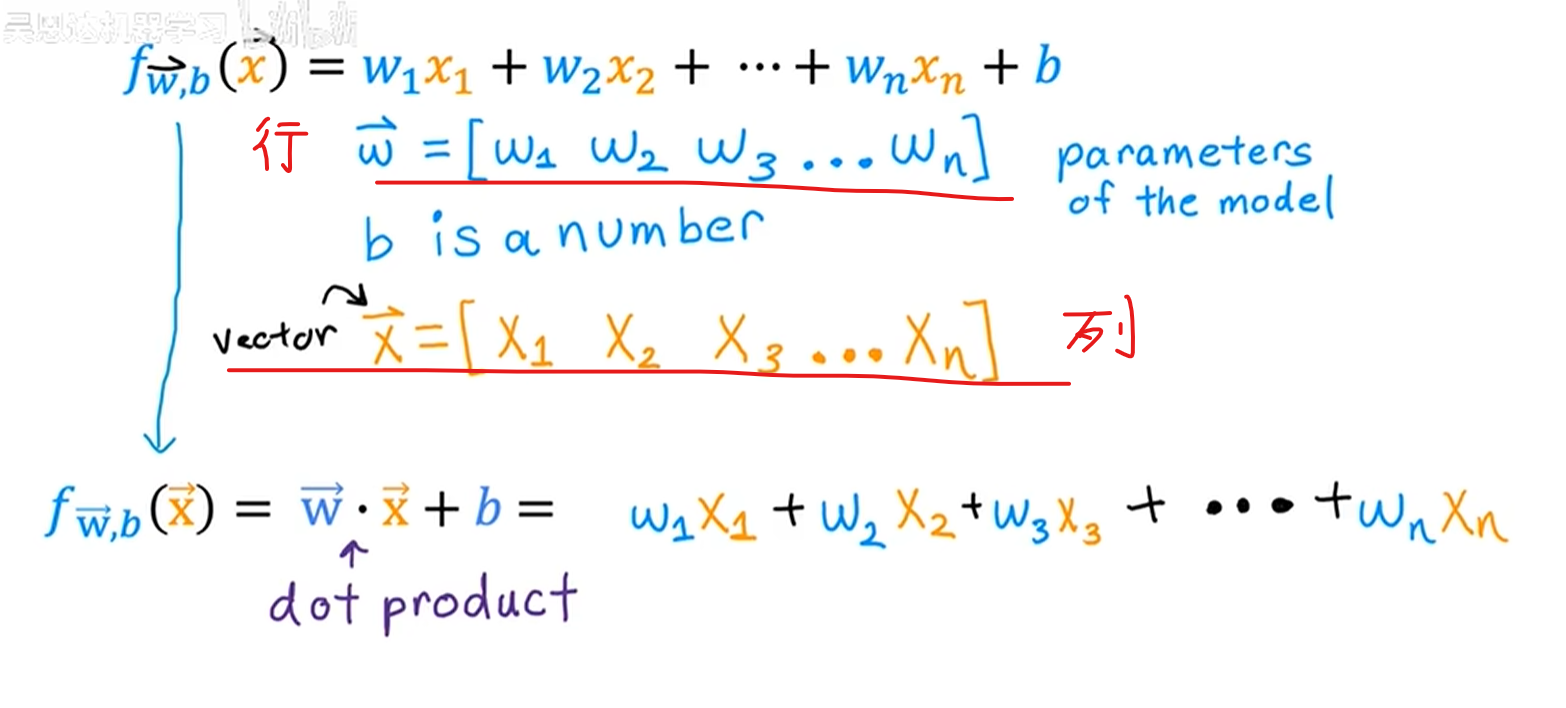 吴恩达机器学习
f_{w⃗,b}(x⃗) = w₁x₁ + w₂x₂ + ⋯ + wₙxₙ + b
行 w⃗ = [w₁ w₂ w₃ ... wₙ] parameters
of the model
b is a number
vector x⃗ = [x₁ x₂ x₃ ... xₙ] 列
f_{w⃗,b}(x⃗) = w⃗ · x⃗ + b = w₁x₁ + w₂x₂ + w₃x₃ + ... + wₙxₙ
dot product